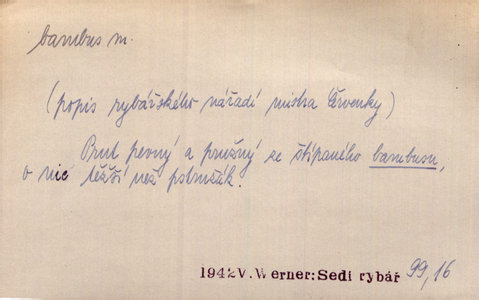 bambus m.
(popis rybářského nářadí mistra Červenky)
Prut pevný a pružný ze štípaného bambusu,
o nic těžší než pstružák.
1942 V. Werner: Sedi rybář 99,16